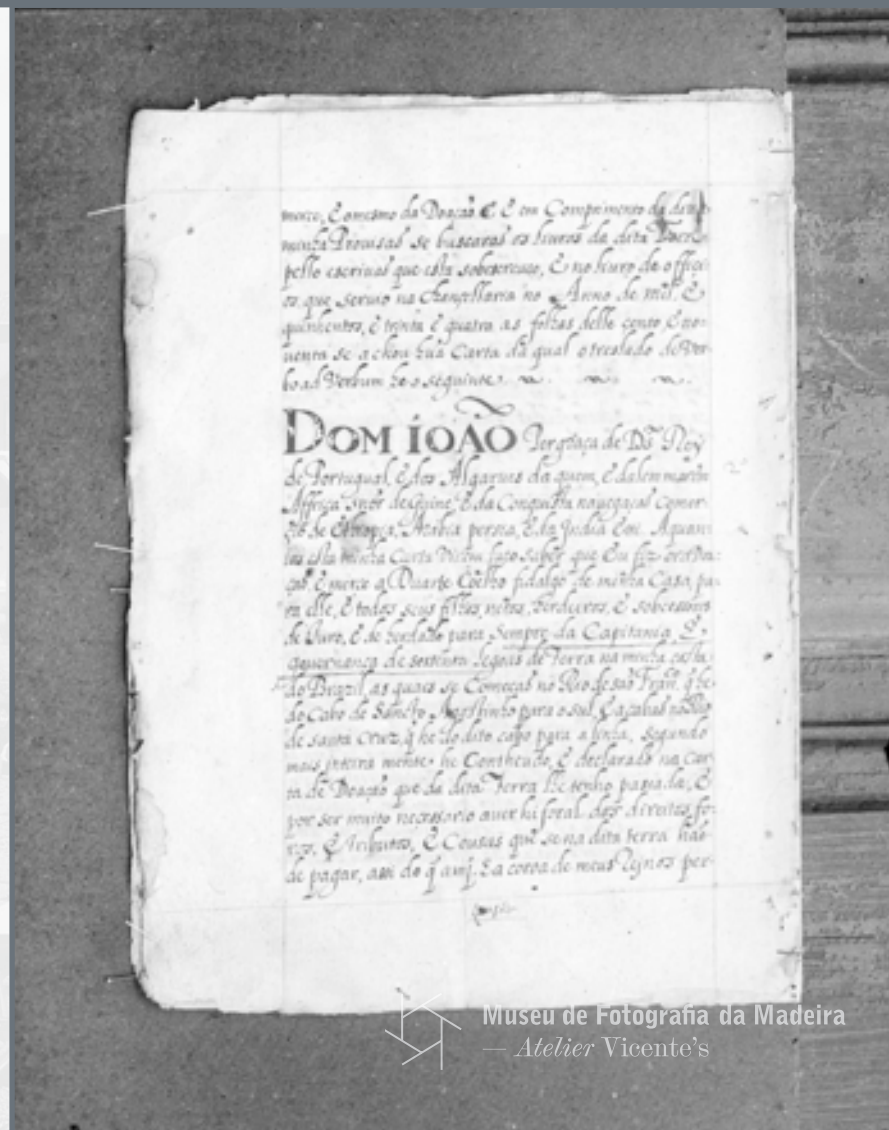 merce, E omesmo da Doação E E em Comprimento da dita
minha Provisaõ se buscaraõ os liuros da dita Torre
pello escriuaõ que esta sobescreueo, E no liuro do offici-
os, que seruio na Chancellaria no Anno de mil, E
quinhentos, E trinta E quatro as folhas delle cento, E no-
uenta se achou hũa Carta da qual o treslado de Ver-
bo ad Verbum he o seguinte
DOM IOÃO Per graça de Ds Rey
de Portugual, E dos Algarues da quem, E dalem mar em
Affrica snõr de Guine, E da Conquista nauegaçaõ Comer-
çio de Ethiopia, Arabia persia, E da India Ett. Aquan-
tos esta minha Carta Virem faço saber que Eu fiz ora Doa-
çaõ, E merce a Duarte Coelho fidalgo de minha Casa, pa-
ra elle, E todos seus filhos, netos, herdeiros, E sobcessores
de Juro, E de herdade para Sempre da Capitania, E
gouernança de sesenta legoas de Terra na minha costa
do Brazil, as quaes se Começaõ no Rio de saõ Franco. q̃ he
do Cabo de Sancto Agostinho para o sul, E acabaõ no Rio
de santa Cruz, q̃ he do dito cabo para a linha, segundo
mais inteira mente he Contheudo, E declarado na car-
ta de Doação que da dita Terra lhe tenho pasada, E
por ser muito necesario auer hi foral dos direitos, fo-
ros, E Tributos, E Cousas que se na dita terra haõ
de pagar, asi do q̃ a mj̃, E a coroa de meus Rejnos per-
Museu de Fotografia da Madeira
— Atelier Vicente's